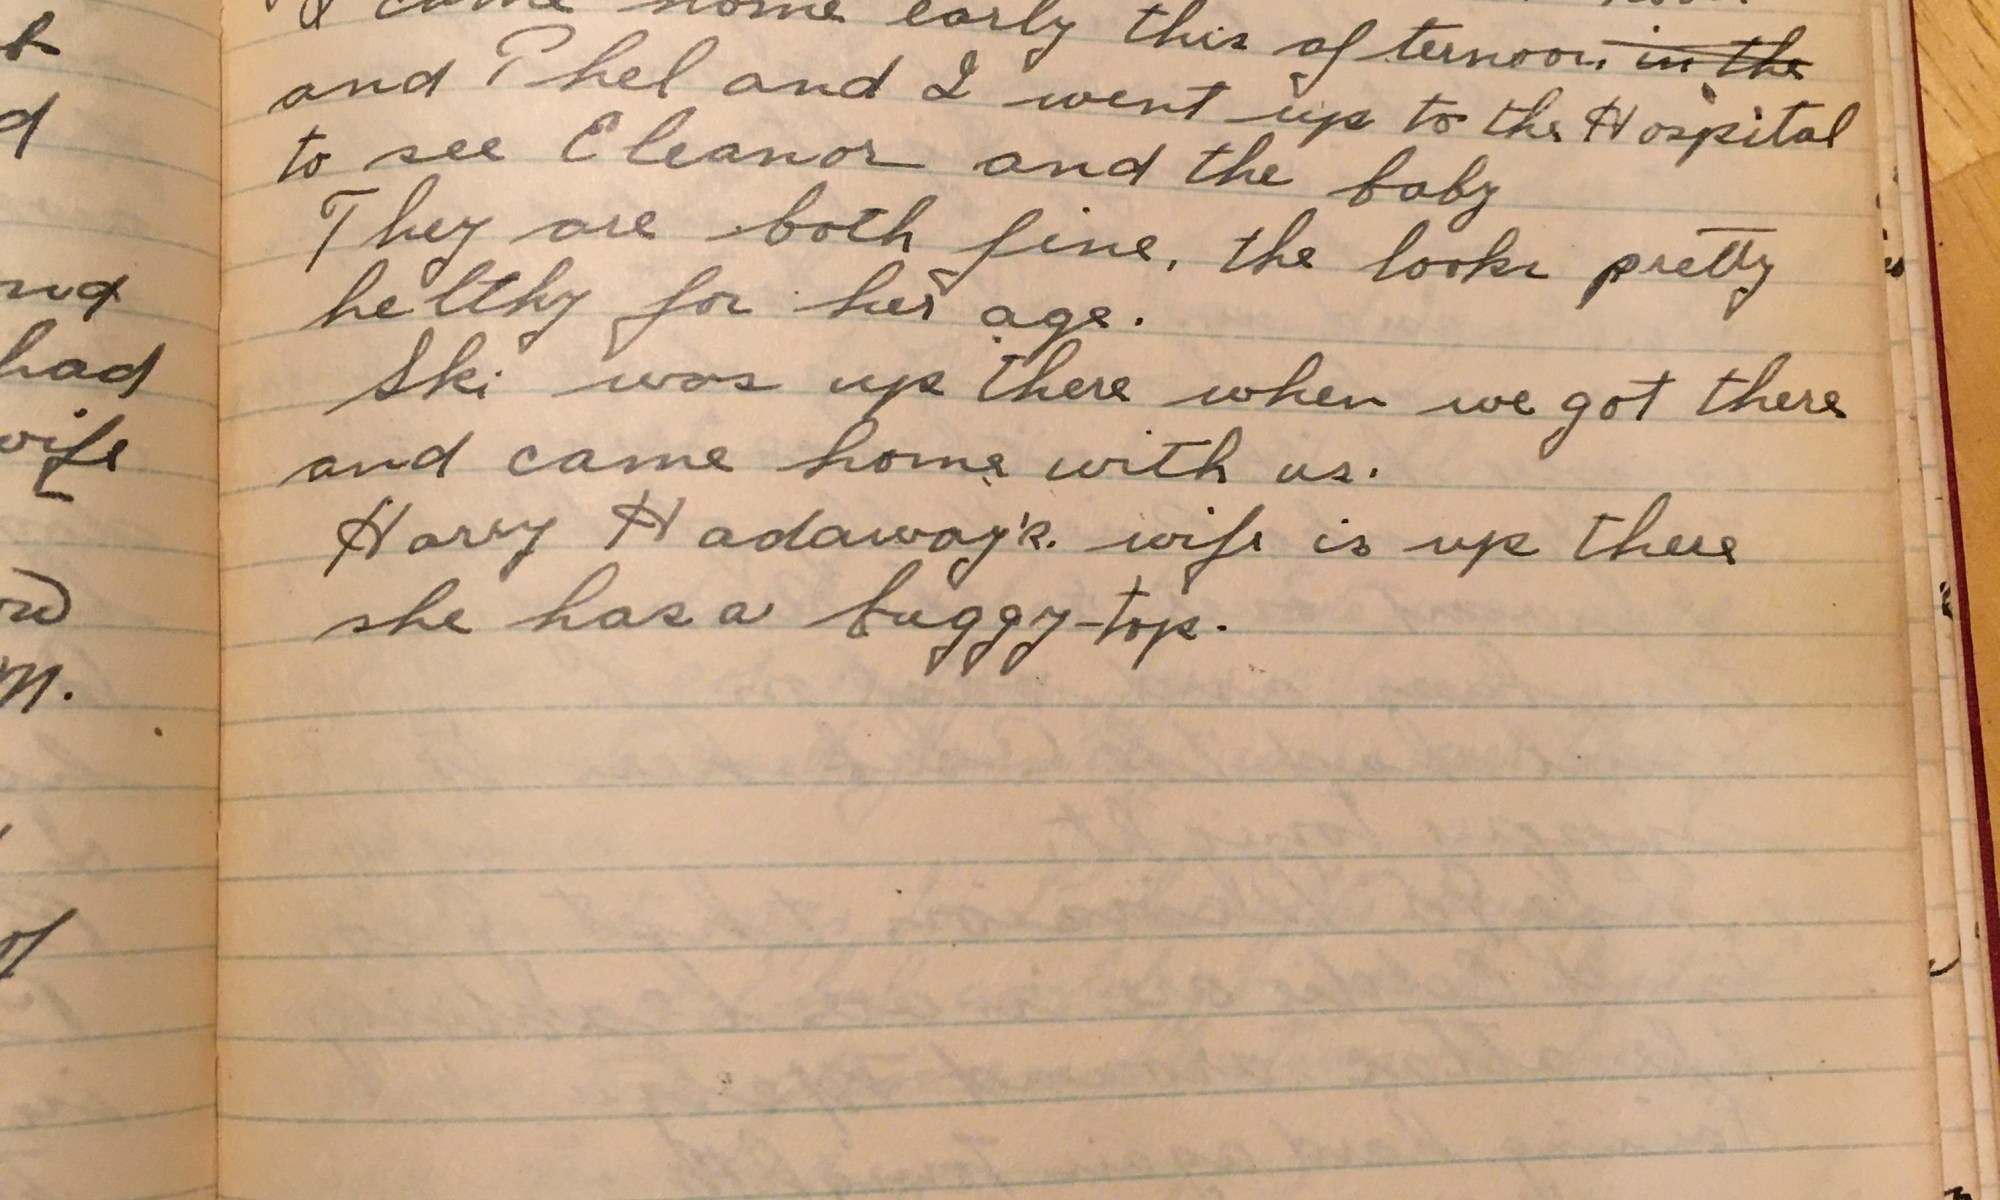 I came home early this afternoon in the
and Phel and I went up to the Hospital
to see Eleanor and the baby
They are both fine, the looks pretty
helthy for her age.
Ski was up there when we got there
and came home with us.
Harry Hadaway's wife is up there
she has a buggy-top.
nd
had
wife
M.
of